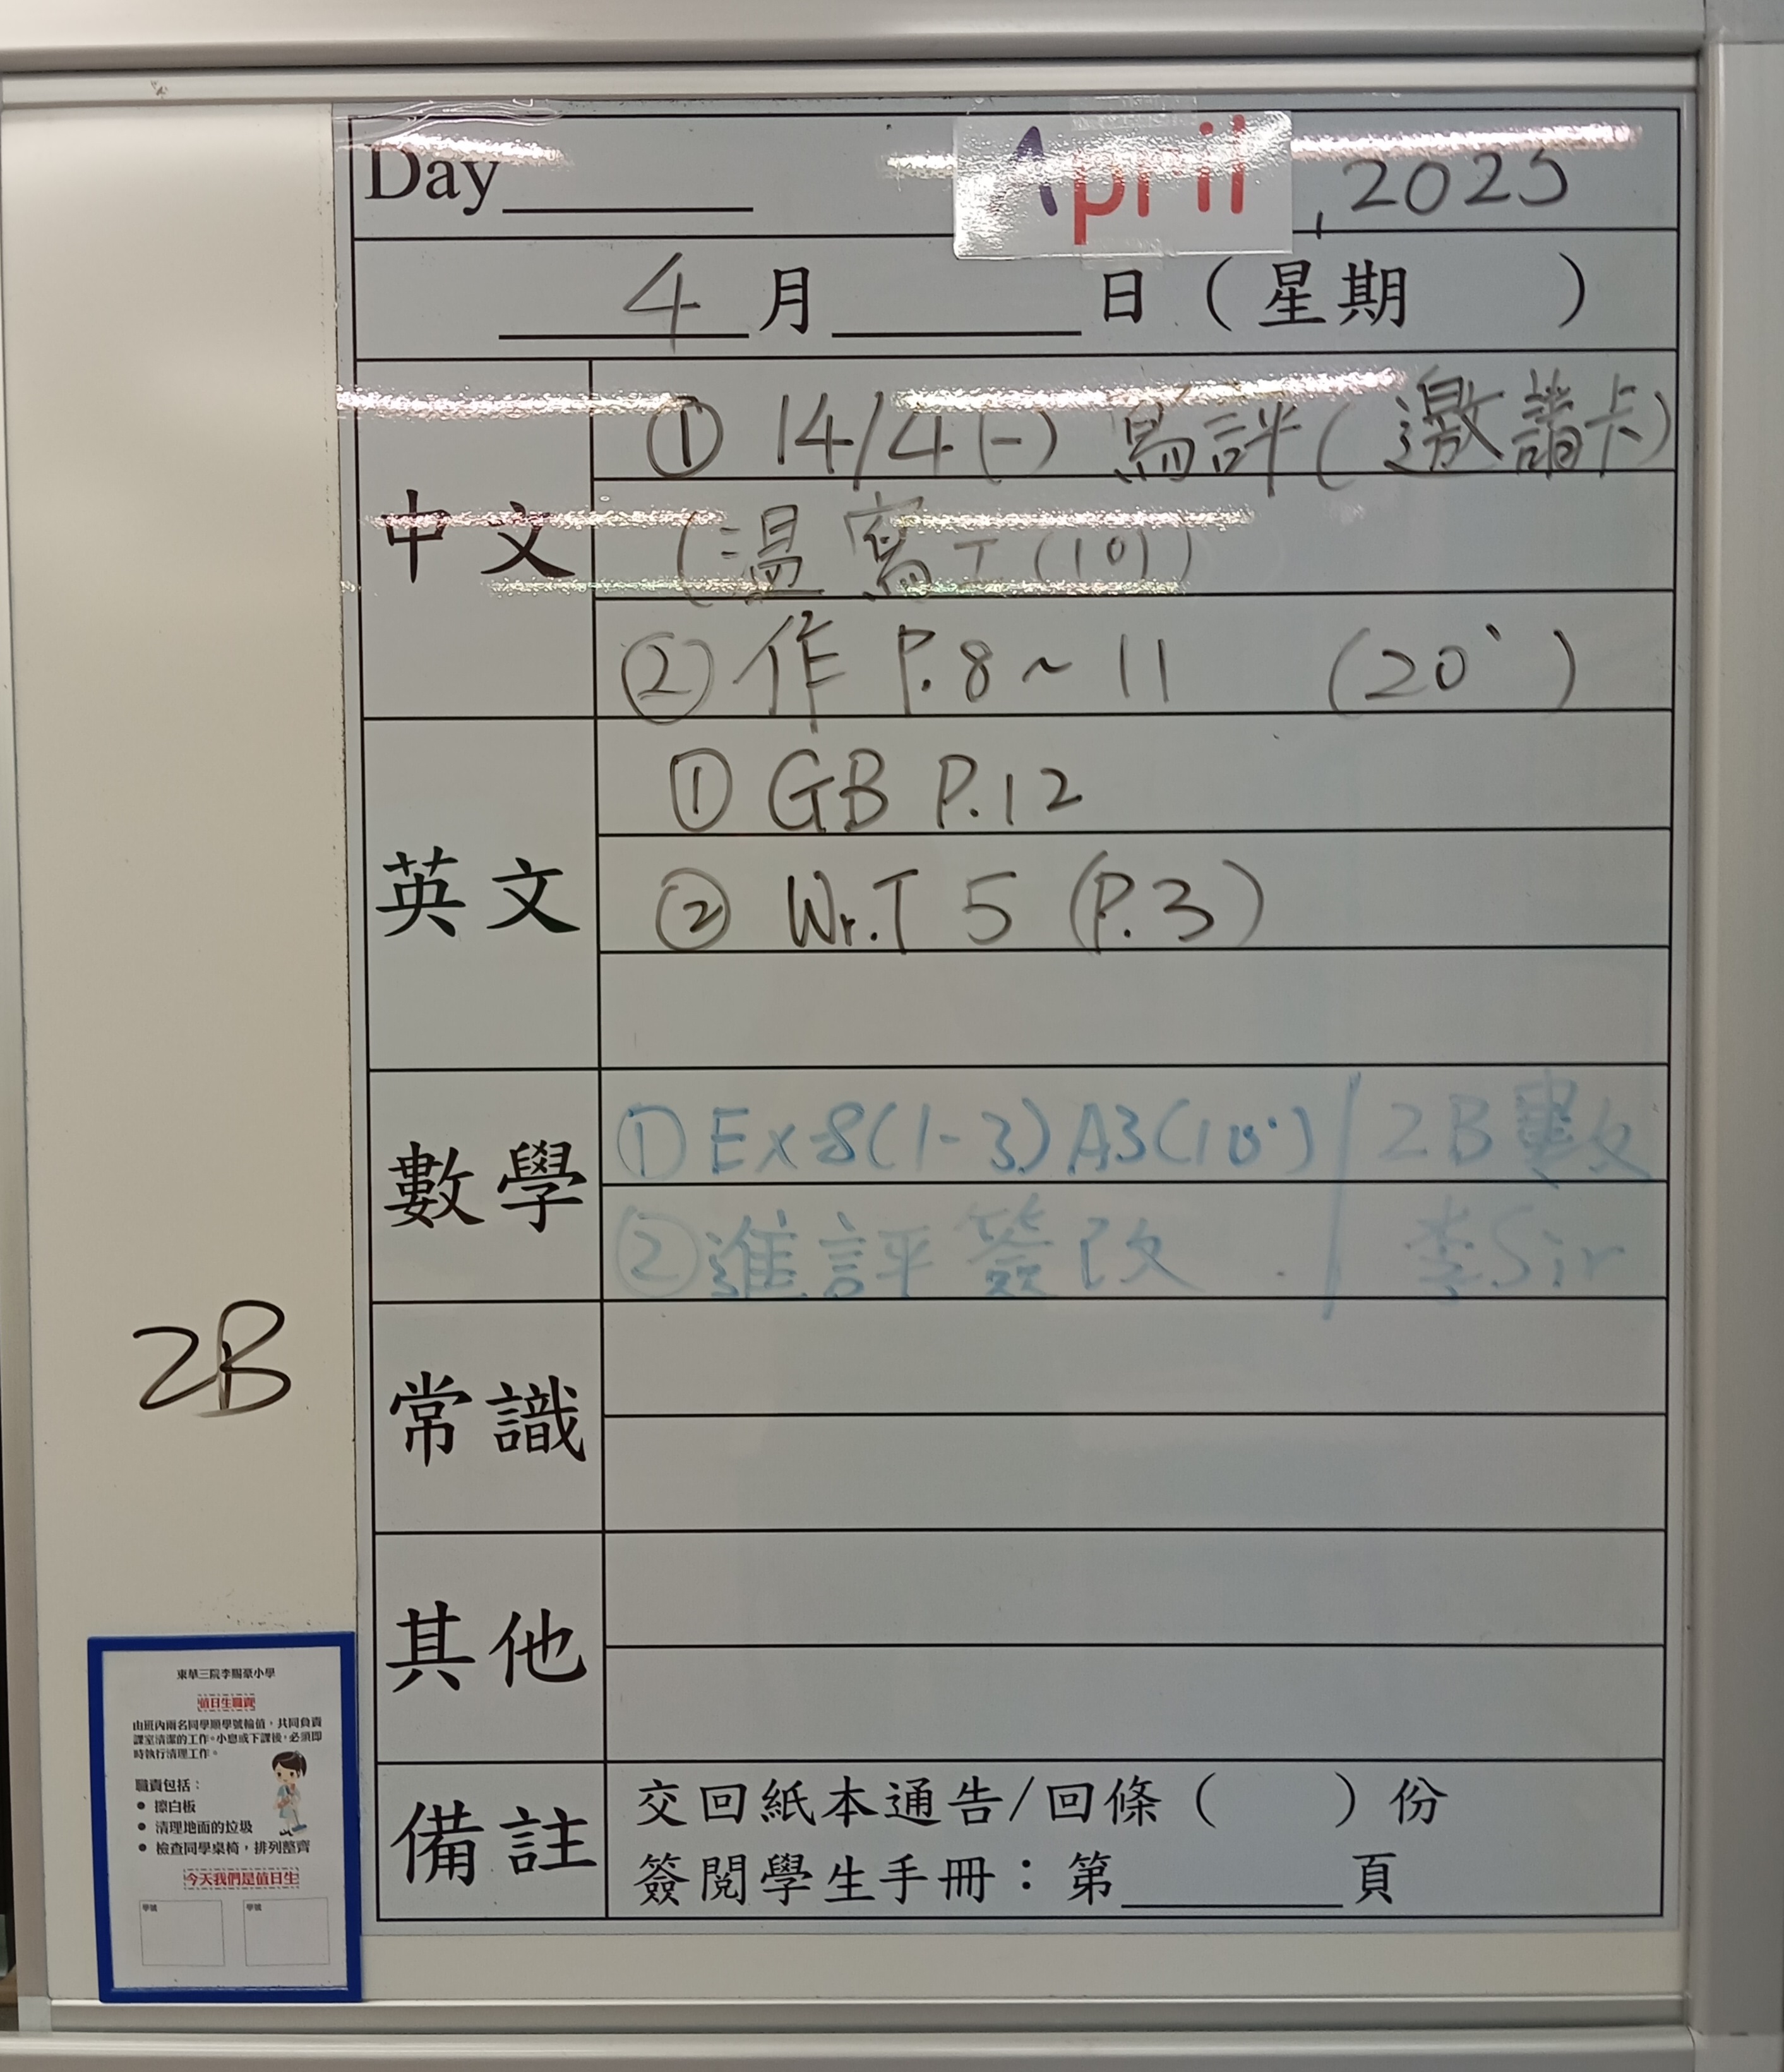 Day
April , 2025
4 月 日 ( 星期 )
中文
① 14/4 (一) 寫評 ( 邀請卡 )
( 溫寫工 (10) )
② 作 P.8 ~ 11 (20')
英文
① GB P.12
② Wr.T 5 (P.3)
數學
① Ex 8 (1-3) A3 (10') / 2B 數
② 進評簽改 李Sir
常識
其他
備註
交回紙本通告/回條 ( ) 份
簽閱學生手冊：第 頁
2B
東華三院李賜豪小學
值日生職責
由班內兩名同學順學號輪值，共同負責
課室清潔的工作。小息或下課後，必須即
時執行清理工作。
職責包括：
• 擦白板
• 清理地面的垃圾
• 檢查同學桌椅，排列整齊
今天我們是值日生
學號 學號